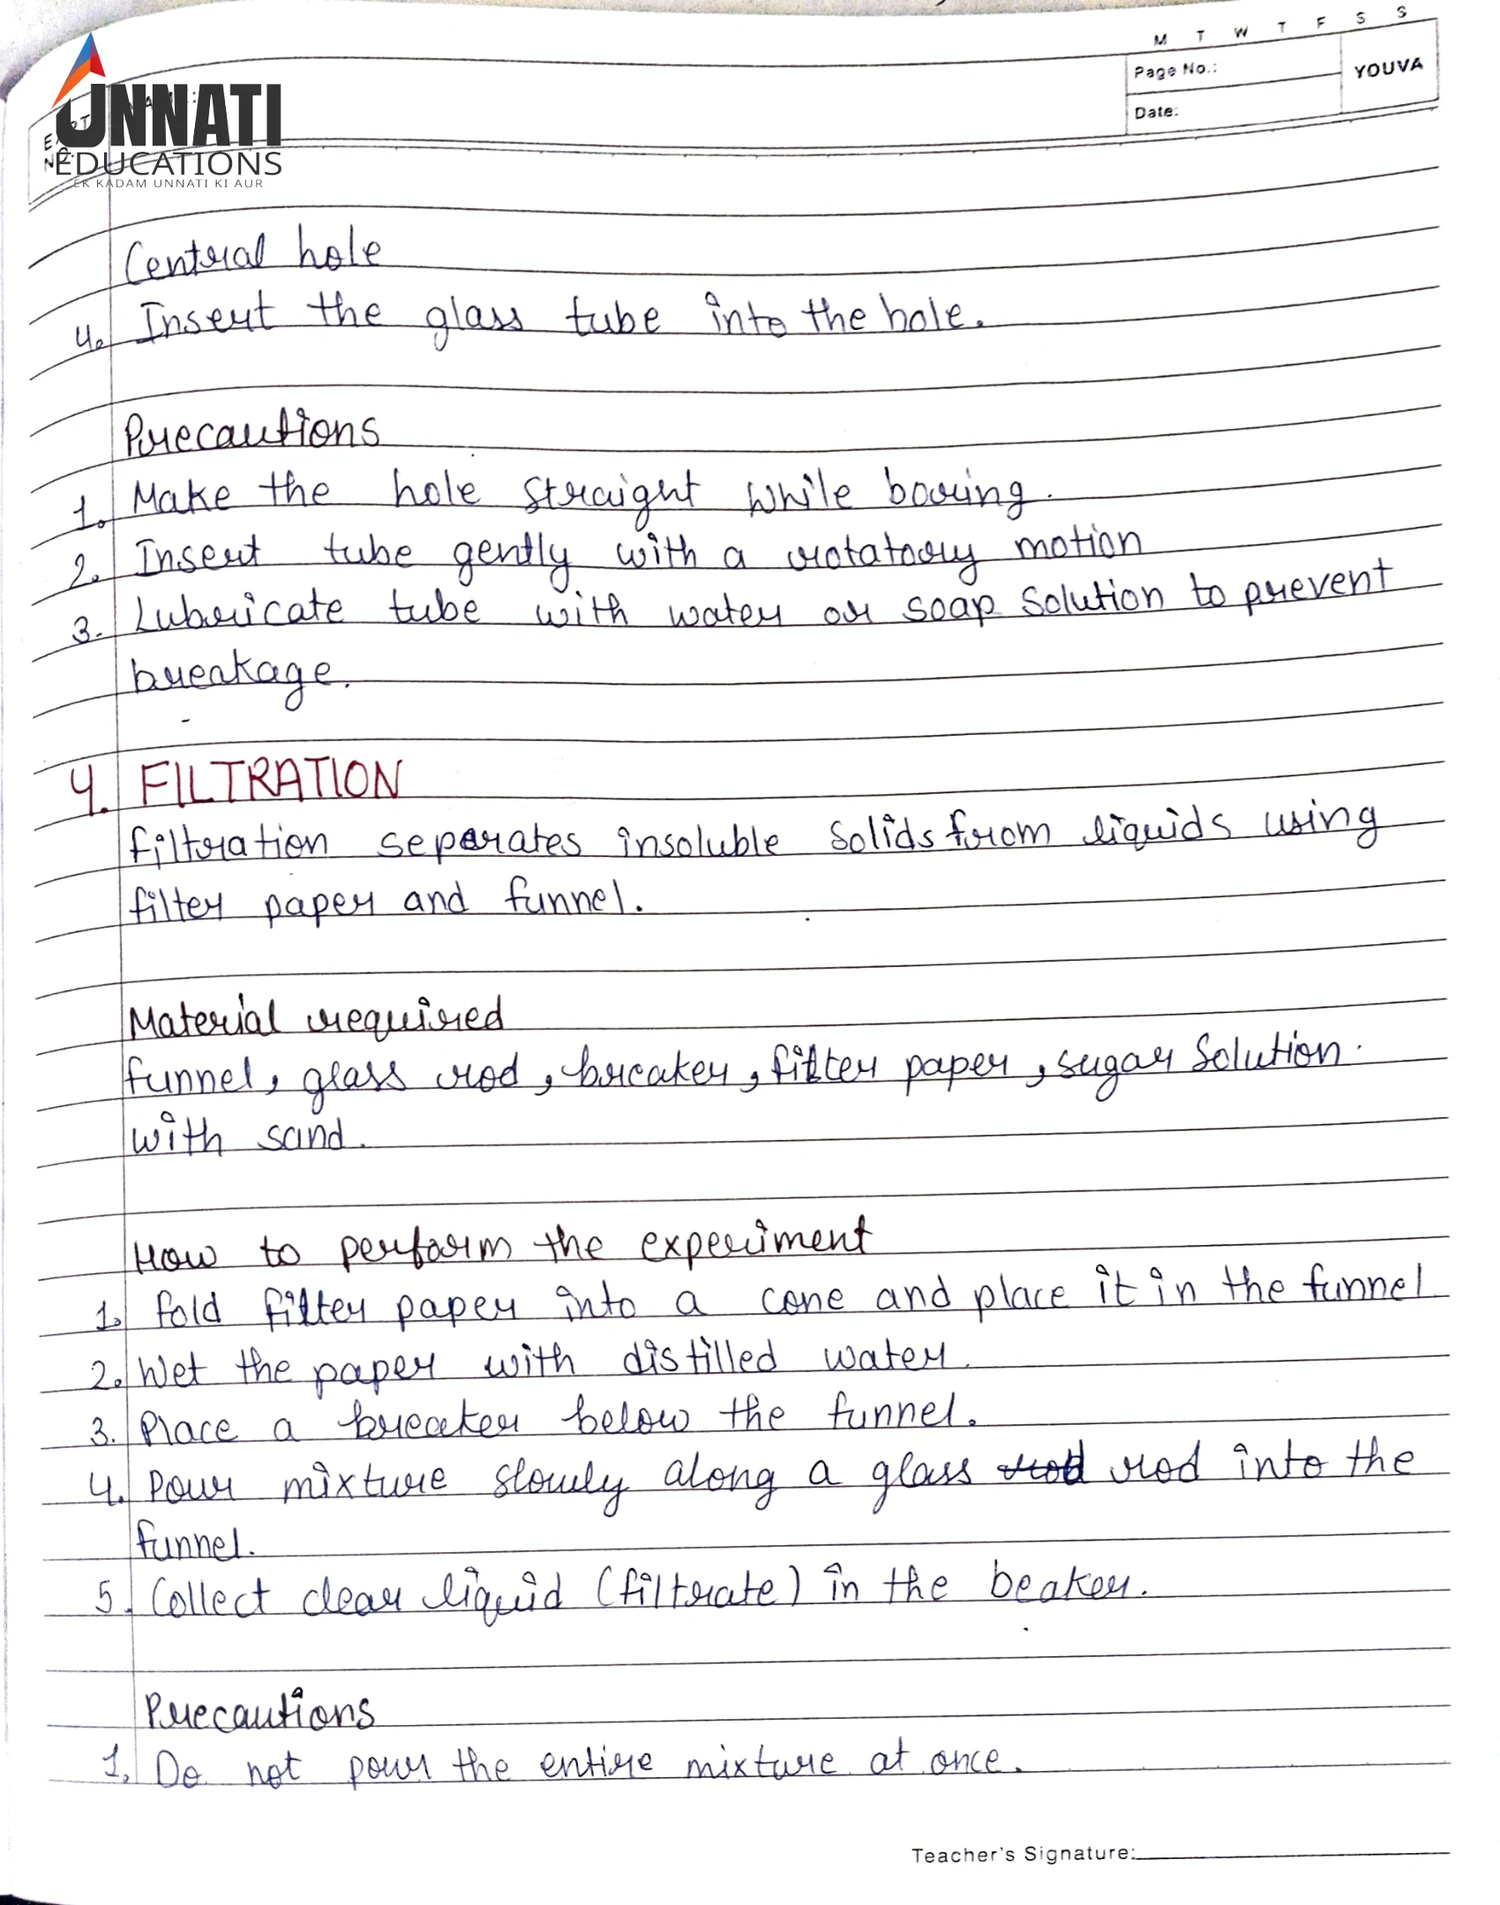 M T W T F S S
Page No.:
YOUVA
Date:
UNNATI
EDUCATIONS
EK KADAM UNNATI KI AUR
Central hole
4. Insert the glass tube into the hole.
Precautions
1. Make the hole straight while boring.
2. Insert tube gently with a rotatory motion
3. Lubricate tube with water or soap solution to prevent
breakage.
4. FILTRATION
filtration separates insoluble solids from liquids using
filter paper and funnel.
Material required
funnel, glass rod, breaker, filter paper, sugar solution.
with sand.
How to perform the experiment
1. fold filter paper into a cone and place it in the funnel
2. Wet the paper with distilled water.
3. Place a breaker below the funnel.
4. Pour mixture slowly along a glass rod into the
funnel.
5. Collect clear liquid (filtrate) in the beaker.
Precautions
1. Do not pour the entire mixture at once.
Teacher's Signature: